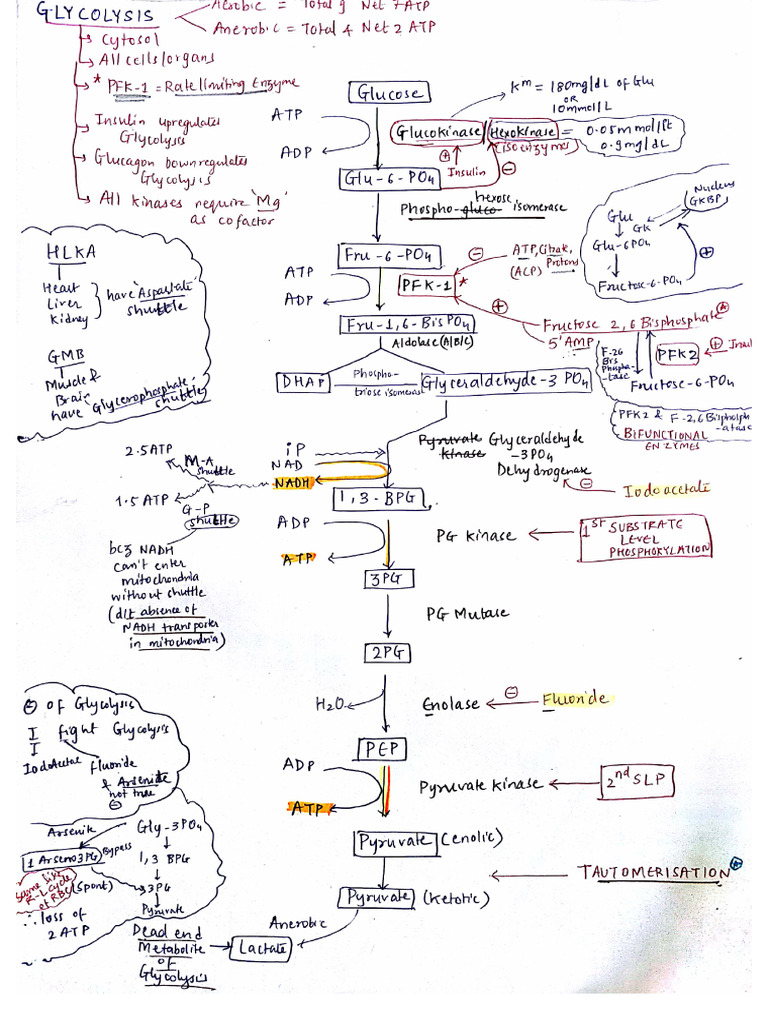 GLYCOLYSIS
Aerobic = Total 9 Net 7 ATP
Anerobic = Total 4 Net 2 ATP
Cytosol
All cells/organs
* PFK-1 = Rate limiting Enzyme
Insulin upregulates
Glycolysis
Glucagon downregulates
Glycolysis
All kinases require 'Mg'
as cofactor
Glucose
ATP
ADP
Glucokinase / Hexokinase = 0.05 mmol/lt
(isoenzymes) 0.9 mg/dL
Km = 180mg/dL of Glu
OR
10mmol/L
⊕ Insulin ⊖
Glu-6-PO4
hexose
Phospho-gluco isomerase
Nucleus
GKBP
Glu
GK
Glu-6PO4
Fructose-6-PO4
⊕
HLKA
Heart
Liver
Kidney
have 'Aspartate'
shuttle
GMB
Muscle &
Brain
have 'Glycerophosphate'
shuttle
Fru-6-PO4
ATP
ADP
PFK-1 *
⊖ ATP, Citrate,
Protons
(ACP)
⊕
Fructose 2,6 Bisphosphate
5' AMP
F-26
Bis
Phospha-
tase
PFK2
⊕ Insul
Fructose-6-PO4
PFK2 & F-2,6 Bisphosph
-atase
BIFUNCTIONAL
ENZYMES
Fru-1,6-BisPO4
Aldolase (A/B/C)
DHAP
Phospho-
triose isomeras
Glyceraldehyde-3 PO4
iP
NAD
NADH
Pyruvate Glyceraldehyde
kinase -3PO4
Dehydrogenase
⊖ Iodoacetate
2.5ATP
M-A
shuttle
1.5 ATP
G-P
shuttle
bcz NADH
can't enter
mitochondria
without shuttle
(d/t absence of
NADH transporter
in mitochondria)
1,3-BPG
ADP
ATP
PG kinase
1ST SUBSTRATE
LEVEL
PHOSPHORYLATION
3PG
PG Mutase
2PG
H2O
Enolase
⊖ Fluoride
PEP
ADP
ATP
Pyruvate kinase
2nd SLP
Pyruvate (enolic)
TAUTOMERISATION
Pyruvate (ketotic)
Anerobic
Lactate
⊖ of Glycolysis
I fight Glycolysis
I
Iodoacetate
fluoride
& Arsenite
not true
⊖
Arsenik
Gly-3PO4
Bypass
1 Arseno3PG
1,3 BPG
(Spont)
3PG
Same like
R-L cycle
of RBC
Pyruvate
∴ loss of
2 ATP
Dead end
Metabolite
of
Glycolysis